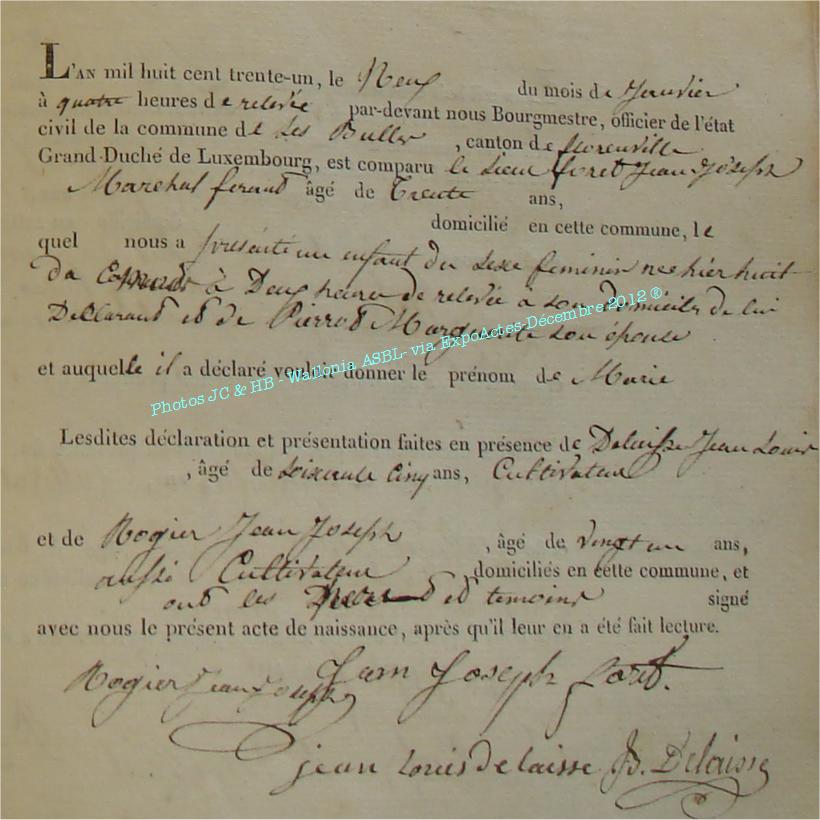 L'AN mil huit cent trente-un, le Neuf du mois de Janvier
à quatre heures de relevée par-devant nous Bourgmestre, officier de l'état
civil de la commune de Les Bulles, canton de florenville
Grand-Duché de Luxembourg, est comparu le Sieur foret Jean Joseph
Marechal ferant âgé de Trente ans,
domicilié en cette commune, le
quel nous a presenté un enfant du sexe feminin nee hier huit
du à Deux heures de relevée a son Domicile de lui
Declarant et de Pierrot Marguerite son épouse
et auquelle il a déclaré vouloir donner le prénom de Marie
Photos JC & HB - Wallonia ASBL- via ExpoActes-Décembre 2012 ®
Lesdites déclaration et présentation faites en présence de Delaisse Jean Louis
, âgé de soixante cinq ans, Cultivateur
et de Rogier Jean Joseph , âgé de vingt un ans,
aussi Cultivateur domiciliés en cette commune, et
ont les et temoins signé
avec nous le présent acte de naissance, après qu'il leur en a été fait lecture.
Rogier Jean Joseph Jean Joseph foret.
jean Louis delaisse B. Delaisse